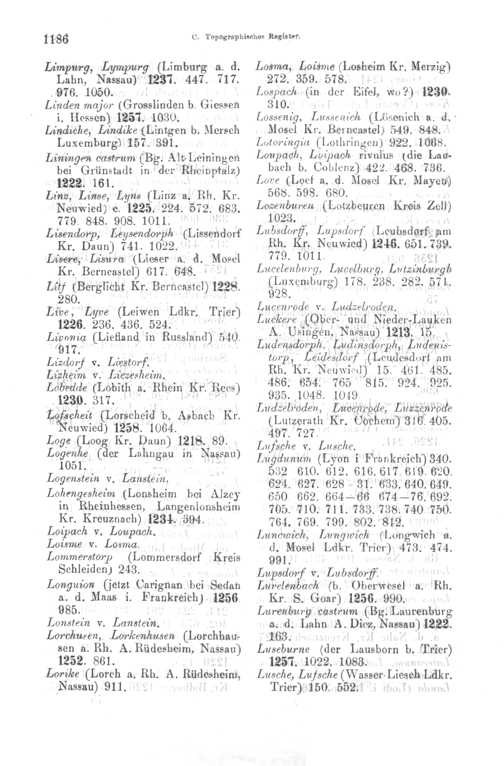 1186
C. Topographisches Register.
Limpurg, Lympurg (Limburg a. d.
Lahn, Nassau) 1237. 447. 717.
976. 1050.
Linden major (Grosslinden b. Giessen
i. Hessen) 1257. 1030.
Lindiche, Lindike (Lintgen b. Mersch
Luxemburg) 157. 391.
Liningen castrum (Bg. Alt-Leiningen
bei Grünstadt in der Rheinpfalz)
1222. 161.
Linz, Linse, Lyns (Linz a. Rh. Kr.
Neuwied) c. 1225. 224. 572. 683.
779. 848. 908. 1011.
Lisendorp, Leysendorph (Lissendorf
Kr. Daun) 741. 1022.
Lisere, Lisura (Lieser a. d. Mosel
Kr. Berncastel) 617. 648.
(Berglicht Kr. Berncastel) 1228.
280.
Live, Lyve (Leiwen Ldkr. Trier)
1226. 236. 436. 524.
Livonia (Liefland in Russland) 540.
917.
Lizdorf v. Liestorf.
Lizheim v. Liezesheim.
Lobedde (Lobith a. Rhein Kr. Rees)
1230. 317.
Lofscheit (Lorscheid b. Asbach Kr.
Neuwied) 1258. 1064.
Loge (Loog Kr. Daun) 1218. 89.
Logenhe (der Lahngau in Nassau)
1051.
Logenstein v. Lanstein.
Lohengesheim (Lonsheim bei Alzey
in Rheinhessen, Langenlonsheim
Kr. Kreuznach) 1234. 394.
Loipach v. Loupach.
Loisme v. Losma.
Lommerstorp (Lommersdorf Kreis
Schleiden) 243.
Longuion (jetzt Carignan bei Sedan
a. d. Maas i. Frankreich) 1256
985.
Lonstein v. Lanstein.
Lorchusen, Lorkenhusen (Lorchhau-
sen a. Rh. A. Rüdesheim, Nassau)
1252. 861.
Lorike (Lorch a. Rh. A. Rüdesheim,
Nassau) 911.
Losma, Loisme (Losheim Kr. Merzig)
272. 359. 578.
Lospach (in der Eifel, wo?) 1230.
310.
Lossenig, Lussenich (Lösenich a. d.
Mosel Kr. Berncastel) 549. 848.
Lotoringia (Lothringen) 922. 1068.
Lonpach, Loipach rivulus (die Lau-
bach b. Coblenz) 422. 468. 736.
Love (Loef a. d. Mosel Kr. Mayen)
568. 598. 680.
Lozenburen (Lotzbeuren Kreis Zell)
1023.
Lubsdorff, Lupsdorf (Leubsdorf am
Rh. Kr. Neuwied) 1246. 651. 739.
779. 1011.
Lucelenburg, Lucelburg, Lutzinburgh
(Luxemburg) 178. 238. 282. 571.
928.
Lucenrode v. Ludzelroden.
Luckere (Ober- und Nieder-Lauken
A. Usingen, Nassau) 1213. 15.
Ludensdorph, Ludinsdorph, Ludenis-
torp, Leidesdorf (Leudesdorf am
Rh. Kr. Neuwied) 15. 461. 485.
486. 654. 765 815. 924. 925.
935. 1048. 1049
Ludzelroden, Lucenrode, Luzzenrode
(Lutzerath Kr. Cochem) 316. 405.
497. 727.
Lufsche v. Lusche.
Lugdunum (Lyon i Frankreich) 340.
532 610. 612. 616. 617. 619. 620.
624. 627. 628 - 31. 633. 640. 649.
650 662. 664—66 674—76. 692.
705. 710. 711. 733. 738. 740 750.
764. 769. 799. 802. 812.
Luncwich, Lungwich (Longwich a.
d. Mosel Ldkr. Trier) 473. 474.
991.
Lupsdorf v. Lubsdorff.
Lurelenbach (b. Oberwesel a. Rh.
Kr. S. Goar) 1256. 990.
Lurenburg castrum (Bg. Laurenburg
a. d. Lahn A. Diez, Nassau) 1222.
163.
Luseburne (der Lausborn b. Trier)
1257. 1022. 1083.
Lusche, Lufsche (Wasser-Liesch Ldkr.
Trier) 150. 552.